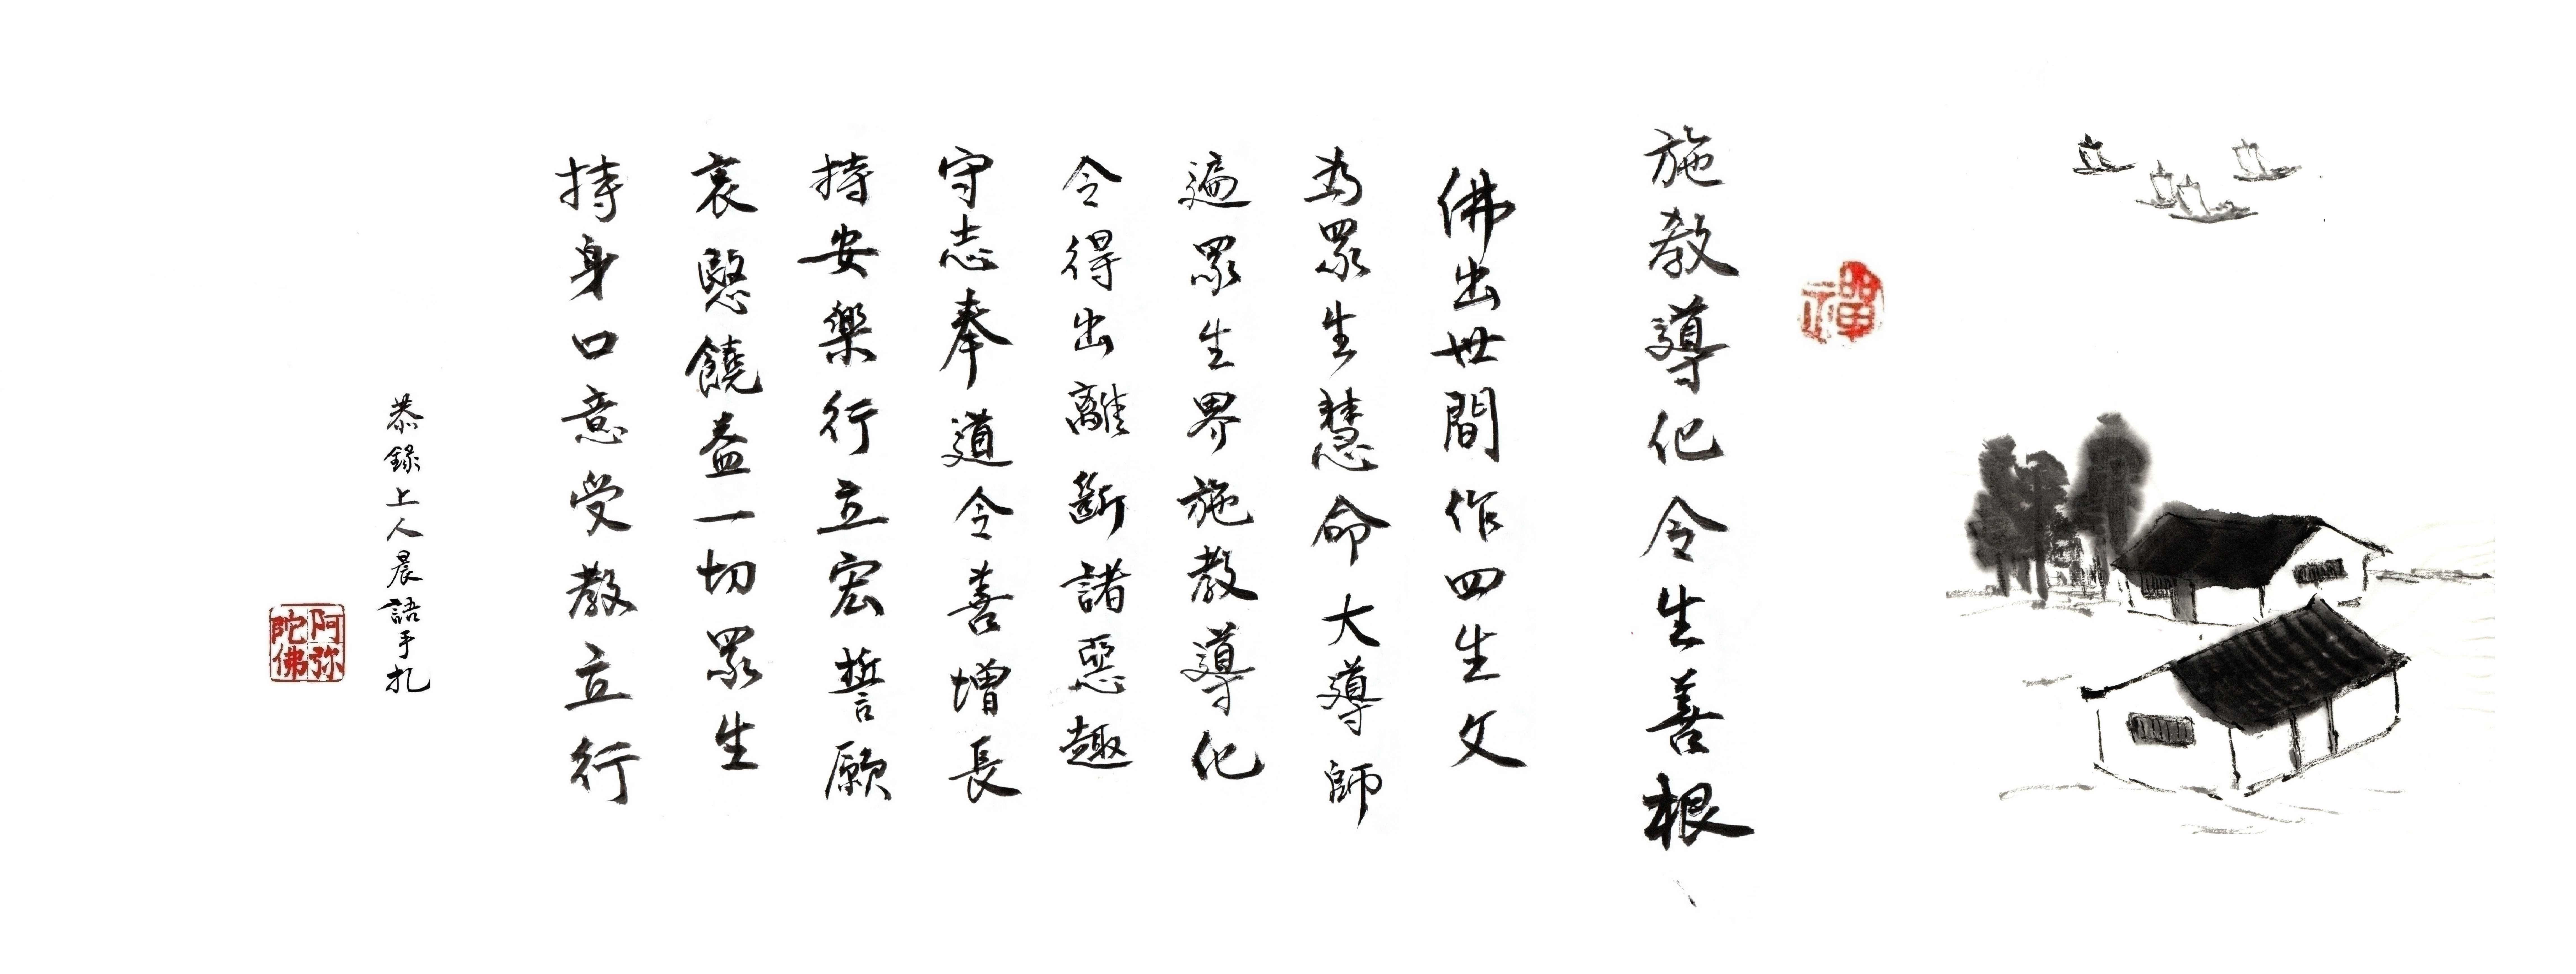 禪
施教導化令生善根
佛出世間作四生父
為眾生慧命大導師
遍眾生界施教導化
令得出離斷諸惡趣
守志奉道令善增長
持安樂行立宏誓願
哀愍饒益一切眾生
持身口意受教立行
恭錄上人晨語手扎
阿弥陀佛